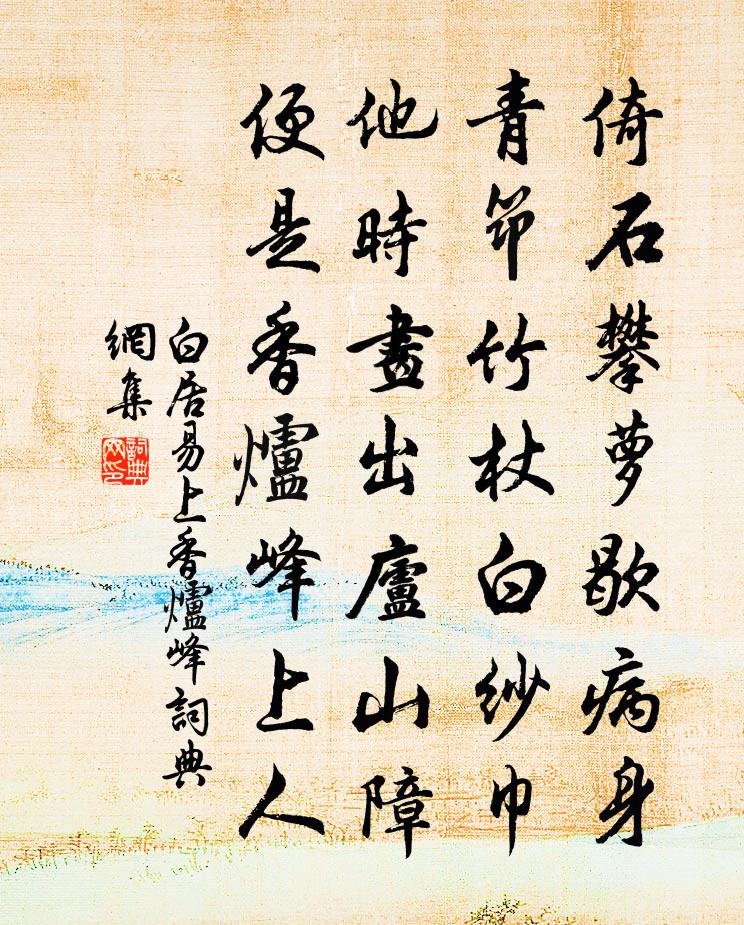 倚石攀蘿歇病身
青筇竹杖白紗巾
他時畫出廬山障
便是香爐峰上人
白居易上香爐峰詞典
網集
詞典
网印